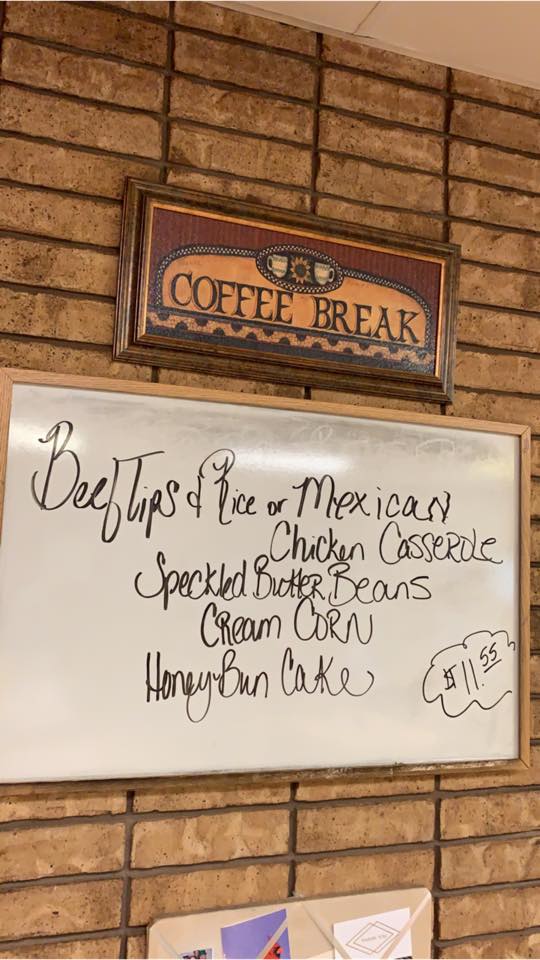 COFFEE BREAK
Beef Tips & Rice or Mexican
Chicken Casserole
Speckled Butter Beans
Cream Corn
Honey Bun Cake
$11.55